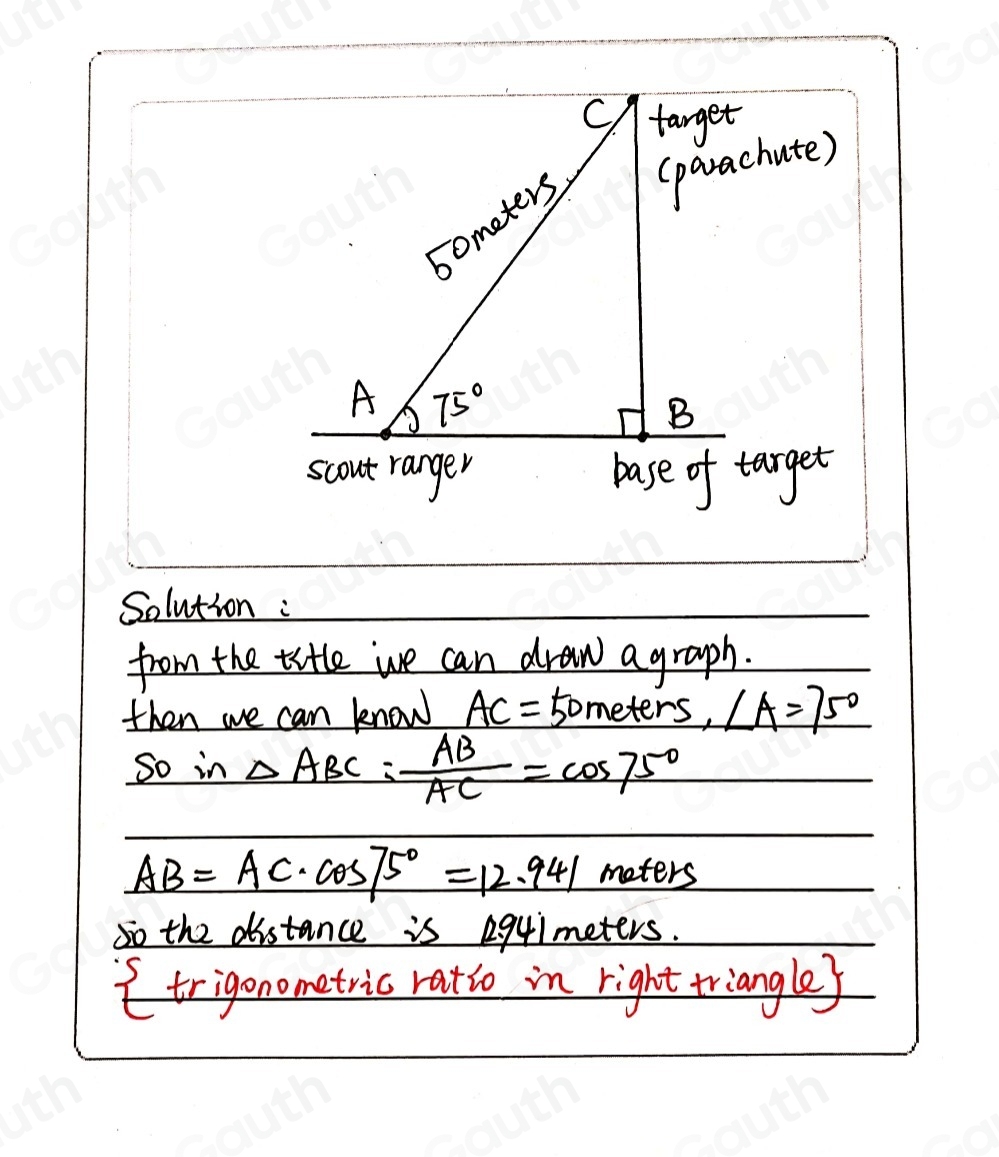 C target
(parachute)
50meters
A 75°
B
scout ranger
base of target
Solution :
from the title we can draw a graph.
then we can know AC = 50meters, ∠A = 75°
So in △ ABC : AB/AC = cos 75°
AB = AC · cos75° = 12.941 meters
So the distance is 12.941 meters.
{ trigonometric ratio in right triangle}
Gauth